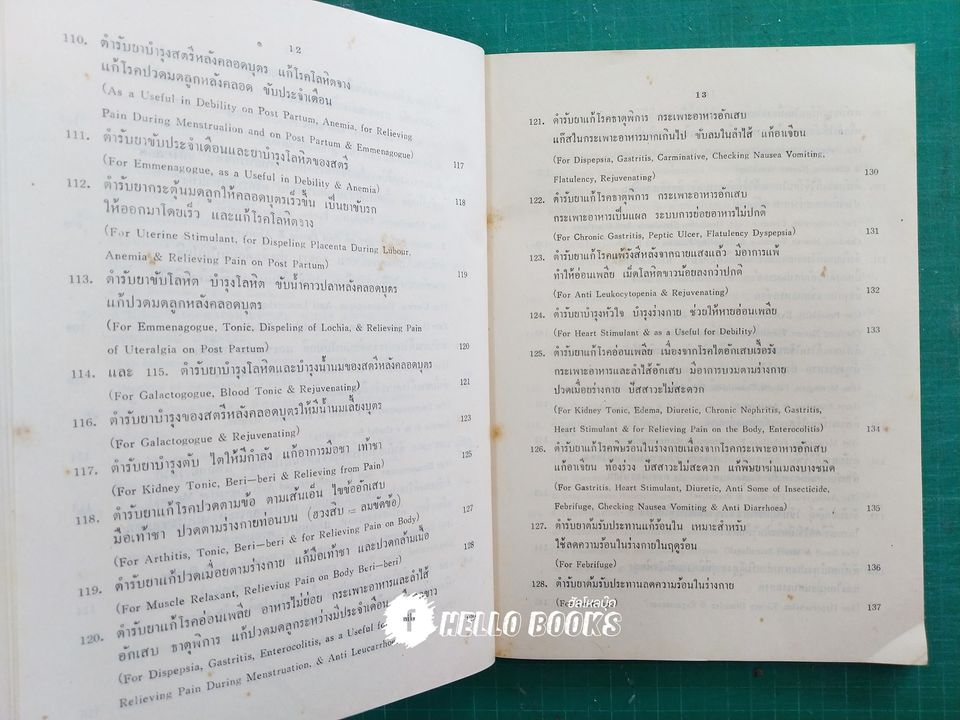 12
110. ตำรับยาบำรุงสตรีหลังคลอดบุตร แก้โรคโลหิตจาง
แก้โรคปวดมดลูกหลังคลอด ขับประจำเดือน
(As a Useful in Debility on Post Partum, Anemia, for Relieving
Pain During Menstrualion and on Post Partum & Emmenagogue) 117
111. ตำรับยาขับประจำเดือนและยาบำรุงโลหิตของสตรี
(For Emmenagogue, as a Useful in Debility & Anemia) 118
112. ตำรับยากระตุ้นมดลูกให้คลอดบุตรเร็วขึ้น เป็นยาขับรก
ให้ออกมาโดยเร็ว และแก้โรคโลหิตจาง
(For Uterine Stimulant, for Dispeling Placenta During Lubour,
Anemia & Relieving Pain on Post Partum) 119
113. ตำรับยาขับโลหิต บำรุงโลหิต ขับน้ำคาวปลาหลังคลอดบุตร
แก้ปวดมดลูกหลังคลอดบุตร
(For Emmenagogue, Tonic, Dispeling of Lochia, & Relieving Pain
of Uteralgia on Post Partum) 120
114. และ 115. ตำรับยาบำรุงโลหิตและบำรุงน้ำนมของสตรีหลังคลอดบุตร
(For Galactogogue, Blood Tonic & Rejuvenating) 121
116. ตำรับยาบำรุงของสตรีหลังคลอดบุตรให้มีน้ำนมเลี้ยงบุตร
(For Galactogogue & Rejuvenating) 123
117. ตำรับยาบำรุงตับ ไตให้มีกำลัง แก้อาการมือชา เท้าชา
(For Kidney Tonic, Beri—beri & Relieving from Pain) 125
118. ตำรับยาแก้โรคปวดตามข้อ ตามเส้นเอ็น ไขข้ออักเสบ
มือเท้าชา ปวดตามร่างกายท่อนบน (ฮวงสิบ = ลมขัดข้อ)
(For Arthitis, Tonic, Beri—beri & for Relieving Pain on Body) 127
119. ตำรับยาแก้ปวดเมื่อยตามร่างกาย แก้มือเท้าชา และปวดกล้ามเนื้อ
(For Muscle Relaxant, Relieving Pain on Body Beri—beri) 128
120. ตำรับยาแก้โรคอ่อนเพลีย อาหารไม่ย่อย กระเพาะอาหารและลำไส้
อักเสบ ธาตุพิการ แก้ปวดมดลูกระหว่างมีประจำเดือน
(For Dispepsia, Gastritis, Enterocolitis, as a Useful
Relieving Pain During Menstruation, & Anti
13
121. ตำรับยาแก้โรคธาตุพิการ กระเพาะอาหารอักเสบ
แก๊สในกระเพาะอาหารมากเกินไป ขับลมในลำไส้ แก้อาเจียน
(For Dispepsia, Gastritis, Carminative, Checking Nausea Vomiting,
Flatulency, Rejuvenating) 130
122. ตำรับยาแก้โรคธาตุพิการ กระเพาะอาหารอักเสบ
กระเพาะอาหารเป็นแผล ระบบการย่อยอาหารไม่ปกติ
(For Chronic Gastritis, Peptic Ulcer, Flatulency Dyspepsia) 131
123. ตำรับยาแก้โรคแพ้รังสีหลังจากฉายแสงแล้ว มีอาการแพ้
ทำให้อ่อนเพลีย เม็ดโลหิตขาวน้อยลงกว่าปกติ
(For Anti Leukocytopenia & Rejuvenating) 132
124. ตำรับยาบำรุงหัวใจ บำรุงร่างกาย ช่วยให้หายอ่อนเพลีย
(For Heart Stimulant & as a Useful for Debility) 133
125. ตำรับยาแก้โรคอ่อนเพลีย เนื่องจากโรคไตอักเสบเรื้อรัง
กระเพาะอาหารและลำไส้อักเสบ มีอาการบวมตามร่างกาย
ปวดเมื่อยร่างกาย ปัสสาวะไม่สะดวก
(For Kidney Tonic, Edema, Diuretic, Chronic Nophritis, Gastritis,
Heart Stimulant & for Relieving Pain on the Body, Enterocolitis) 134
126. ตำรับยาแก้โรคพิษร้อนในร่างกายเนื่องจากโรคกระเพาะอาหารอักเสบ
แก้อาเจียน ท้องร่วง ปัสสาวะไม่สะดวก แก้พิษยาฆ่าแมลงบางชนิด
(For Gastritis, Heart Stimulant, Diuretic, Anti Some of Insecticide,
Febrifuge, Checking Nausea Vomiting & Anti Diarrhoea) 135
127. ตำรับยาต้มรับประทานแก้ร้อนใน เหมาะสำหรับ
ใช้ลดความร้อนในร่างกายในฤดูร้อน
(For Febrifuge) 136
128. ตำรับยาต้มรับประทานลดความร้อนในร่างกาย
137
ฮัลโหลบุ๊ค
HELLO BOOKS